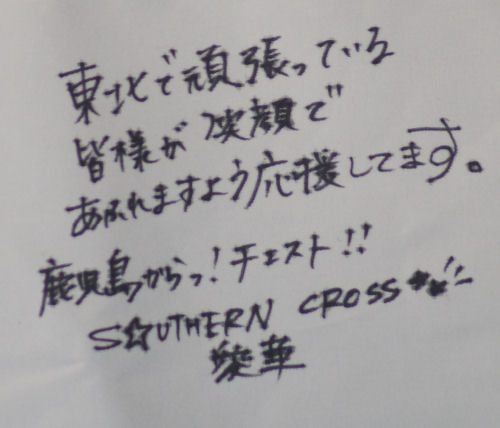 東北で頑張っている
皆様が笑顔で
あふれますよう応援してます。
鹿児島からっ!チェスト!!
S☆UTHERN CROSS
綾華